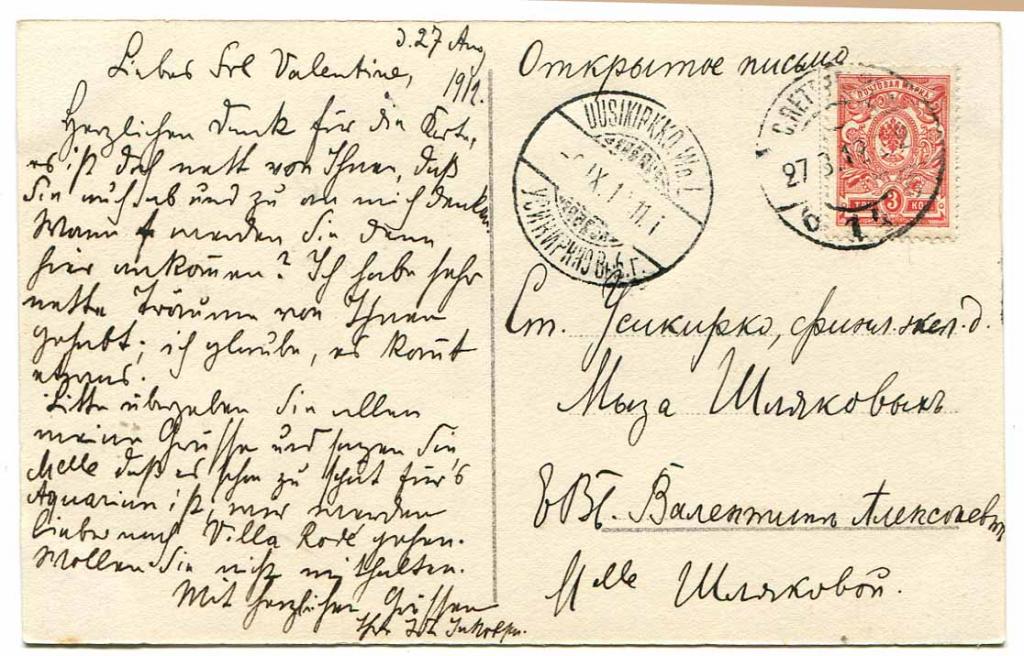 d. 27 Aug
1912.
Liebes Frl Valentine,
Herzlichen Dank für die Karte,
es ist doch nett von Ihnen, daß
Sie auch ab und zu an mich denken
Wann werden Sie denn
hier ankommen? Ich habe sehr
nette Träume von Ihnen
gehabt; ich glaube, es kommt
etwas.
Bitte übergeben Sie allen
meine Grüsse und sagen Sie,
Melle daß es schon zu spät für's
Aquarium ist, wir werden
lieber nach Villa Rodé gehen.
Wollen Sie nicht mithalten.
Mit herzlichen Grüssen
Ihr
Открытое письмо
UUSIKIRKKO W.L.
IX.1 11.1
УСИКИРКО В. Г.
С.ПЕТЕРБ
27 8 12
ПОЧТОВАЯ МАРКА
ТРИ 3 КОП
Ст. Усикирко, финл. жел. д.
Мыза Шляковыхъ
ЕВБ. Валентинѣ Алексѣевнѣ
Melle Шляковой.